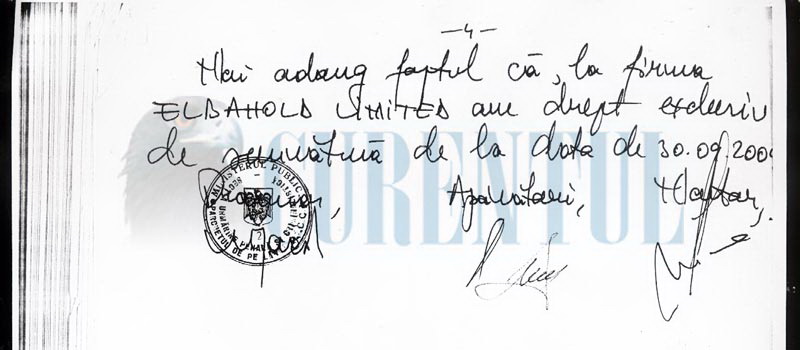 -4-
Mai adaug faptul că, la firma
ELBAHOLD LIMITED am drept exclusiv
de semnătură de la data de 30.09.200
Procuror, Apărători, Martor,
MINISTERUL PUBLIC
CURENTUL